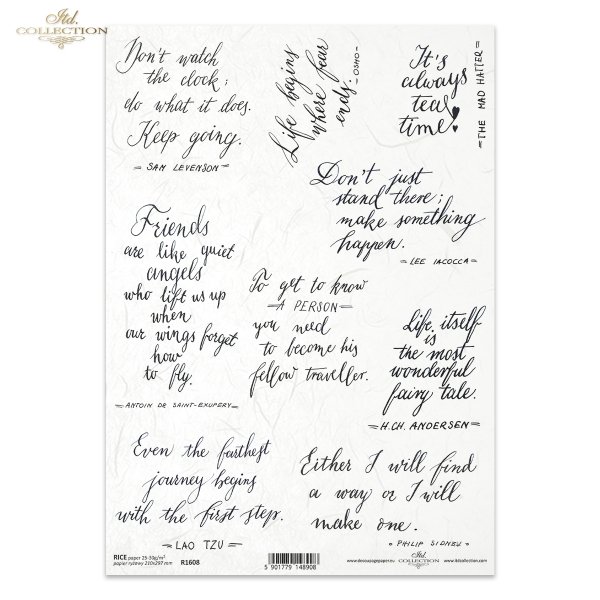 Itd.
COLLECTION
Don't watch
the clock;
do what it does.
Keep going.
- SAM LEVENSON -
Life begins
where fear
ends.
- OSHO -
It's
always
tea
time!
- THE MAD HATTER -
Don't just
stand there;
make something
happen.
- LEE IACOCCA -
Friends
are like quiet
angels
who lift us up
when
our wings forget
how
to fly.
- ANTOIN DE SAINT-EXUPERY -
To get to know
- A PERSON -
you need
to become his
fellow traveller.
Life itself
is
the most
wonderful
fairy tale.
- H.CH. ANDERSEN -
Even the farthest
journey begins
with the first step.
- LAO TZU -
Either I will find
a way or I will
make one.
- PHILIP SIDNEY -
RICE paper 25-30g/m²
papier ryżowy 210x297 mm
R1608
5 901779 148908
www.decoupagepaper.eu
Itd.
COLLECTION
www.itdcollection.com